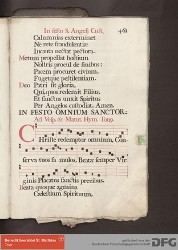 In festo S. Angeli Cust. 463
Calamnius exterminet
Ne rete fraudulentiæ
Incauta nectat pectora.
Metum propellat hostium
Nostris procul de finibus:
Pacem procuret civium,
Fugetque pestilentiam.
Deo Patri sit gloria,
Qui, quos redemit Filius,
Et sanctus unxit Spiritus
Per Angelos custodiat. Amen.
IN FESTO OMNIUM SANCTOR.
Ad Vesp. & Matut. Hym. Tonq.
Christe redemptor omnium, Con-
serva tuos famulos, Beatæ semper Vir-
ginis Placatus sanctis precibus.
Beata quoque agmina
Cælestium Spirituum,
DFG